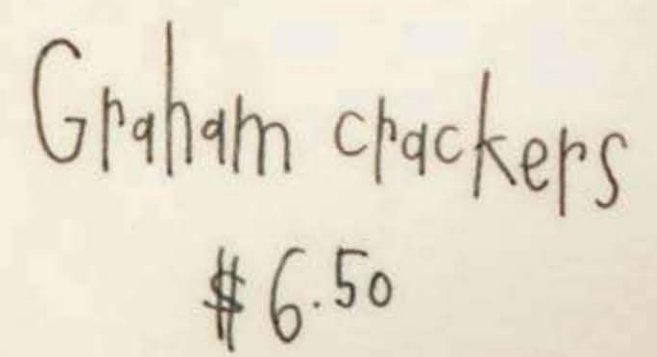 Graham crackers
$6.50